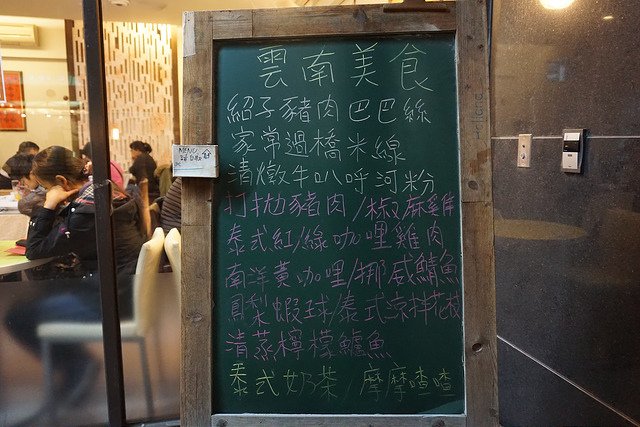 雲南美食
紹子豬肉巴巴絲
家常過橋米線
清燉牛叭呼河粉
打拋豬肉/椒麻雞
泰式紅/綠咖哩雞肉
南洋黃咖哩/挪威鯖魚
鳳梨蝦球/泰式涼拌花枝
清蒸檸檬鱸魚
泰式奶茶/摩摩喳喳
MENU